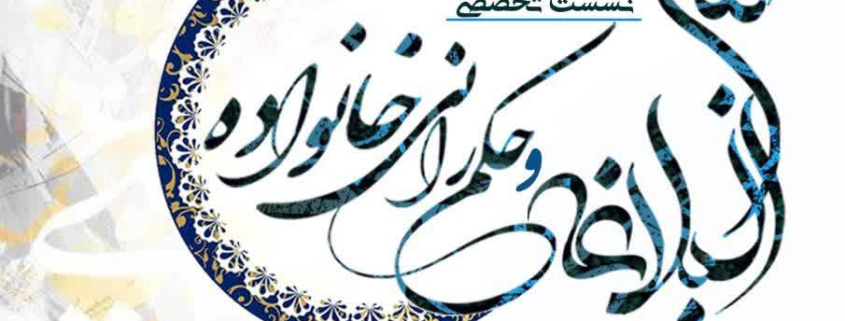 نشست تخصصی
البلاغه و حکمرانی خانواده